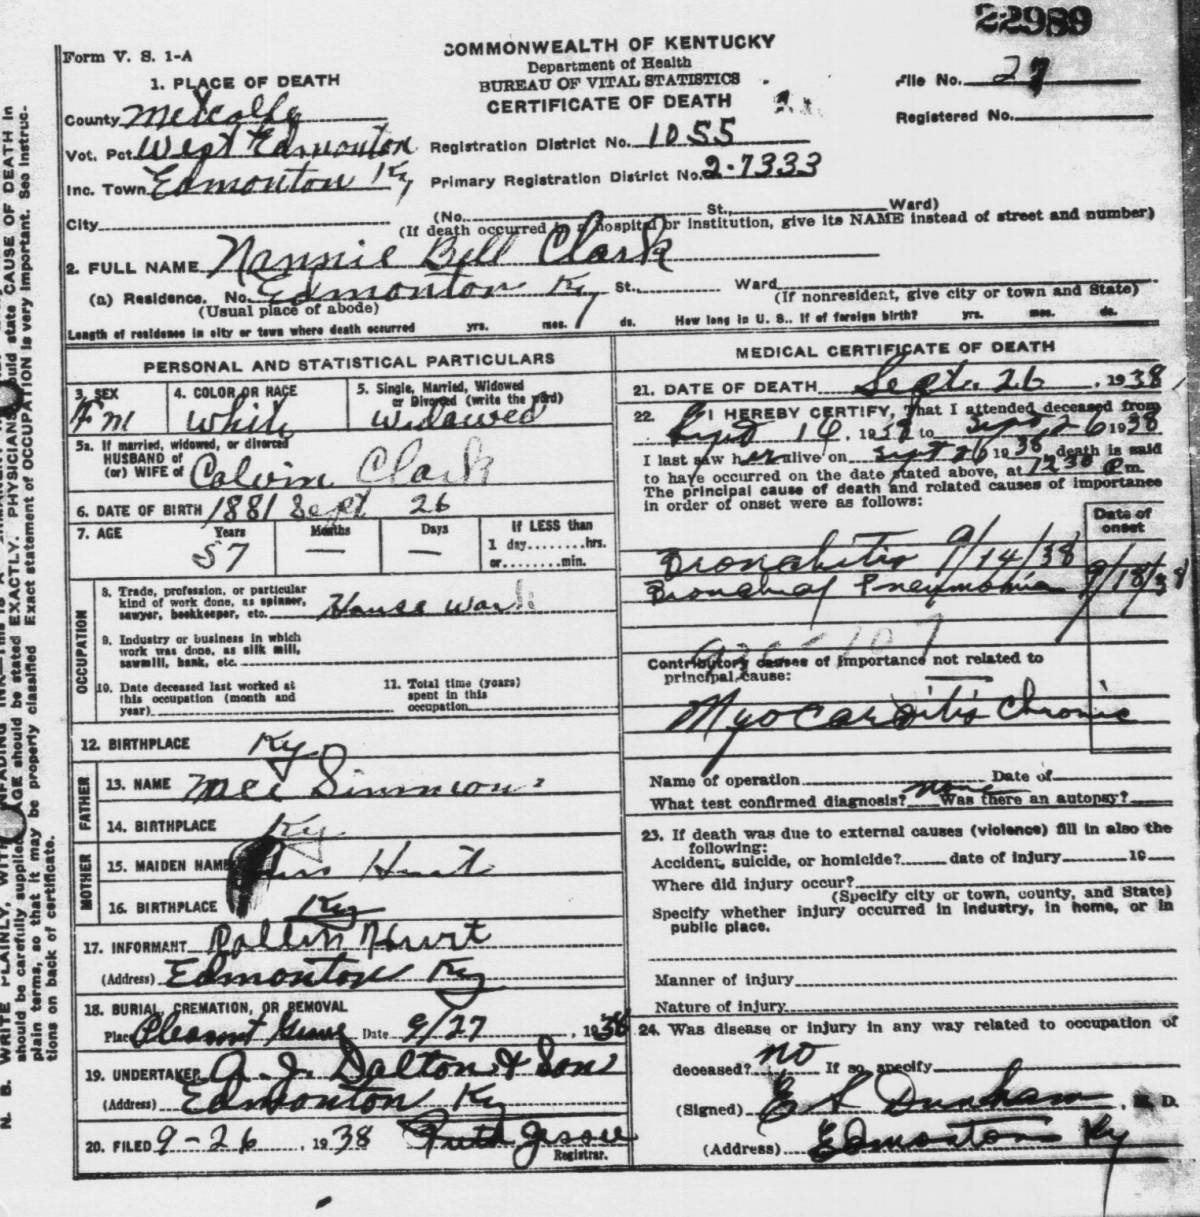 22989
Form V. S. 1-A
COMMONWEALTH OF KENTUCKY
Department of Health
BUREAU OF VITAL STATISTICS
CERTIFICATE OF DEATH
File No. 27
Registered No.
1. PLACE OF DEATH
County Metcalfe
Vot. Pct West Edmonton
Inc. Town Edmonton Ky
Registration District No. 1055
Primary Registration District No. 2-7333
City (No. St., Ward)
(If death occurred in a hospital or institution, give its NAME instead of street and number)
2. FULL NAME Nannie Bell Clark
(a) Residence. No. Edmonton Ky St., Ward
(Usual place of abode) (If nonresident, give city or town and State)
Length of residence in city or town where death occurred yrs. mos. ds. How long in U. S., if of foreign birth? yrs. mos. ds.
PERSONAL AND STATISTICAL PARTICULARS
3. SEX
Fm
4. COLOR OR RACE
White
5. Single, Married, Widowed
or Divorced (write the word)
Widowed
5a. If married, widowed, or divorced
HUSBAND of
(or) WIFE of Calvin Clark
6. DATE OF BIRTH 1881 Sept 26
7. AGE Years Months Days If LESS than
57 — — 1 day........hrs.
or........min.
OCCUPATION
8. Trade, profession, or particular
kind of work done, as spinner,
sawyer, bookkeeper, etc. House Work
9. Industry or business in which
work was done, as silk mill,
sawmill, bank, etc.
10. Date deceased last worked at
this occupation (month and
year)
11. Total time (years)
spent in this
occupation
12. BIRTHPLACE Ky
FATHER
13. NAME Simmons
14. BIRTHPLACE Ky
MOTHER
15. MAIDEN NAME Hurt
16. BIRTHPLACE Ky
17. INFORMANT Rollin Hurt
(Address) Edmonton Ky
18. BURIAL, CREMATION, OR REMOVAL
Place Pleasant Grove Date 9/27, 1938
19. UNDERTAKER A. J. Dalton & Son
(Address) Edmonton Ky
20. FILED 9-26, 1938 Ruth Jessee
Registrar.
MEDICAL CERTIFICATE OF DEATH
21. DATE OF DEATH Sept. 26, 1938
22. I HEREBY CERTIFY, That I attended deceased from
Sept 14, 1938 to Sept, 26 1938
I last saw her alive on Sept 26 1938, death is said
to have occurred on the date stated above, at 12 30 Pm.
The principal cause of death and related causes of importance
in order of onset were as follows:
Date of
onset
Bronchitis 9/14/38
Bronchial Pneumonia 9/18/38
107
Contributory causes of importance not related to
principal cause:
Myocarditis Chronic
Name of operation Date of
What test confirmed diagnosis? none Was there an autopsy?
23. If death was due to external causes (violence) fill in also the
following:
Accident, suicide, or homicide? date of injury 19
Where did injury occur?
(Specify city or town, county, and State)
Specify whether injury occurred in industry, in home, or in
public place.
Manner of injury
Nature of injury
24. Was disease or injury in any way related to occupation of
deceased? no If so, specify
(Signed) E S Dunham, M. D.
(Address) Edmonton Ky
N. B. WRITE PLAINLY, WITH
should be carefully supplied. AGE should be stated EXACTLY. PHYSICIANS should state CAUSE OF DEATH in
plain terms, so that it may be properly classified. Exact statement of OCCUPATION is very important. See instruc-
tions on back of certificate.